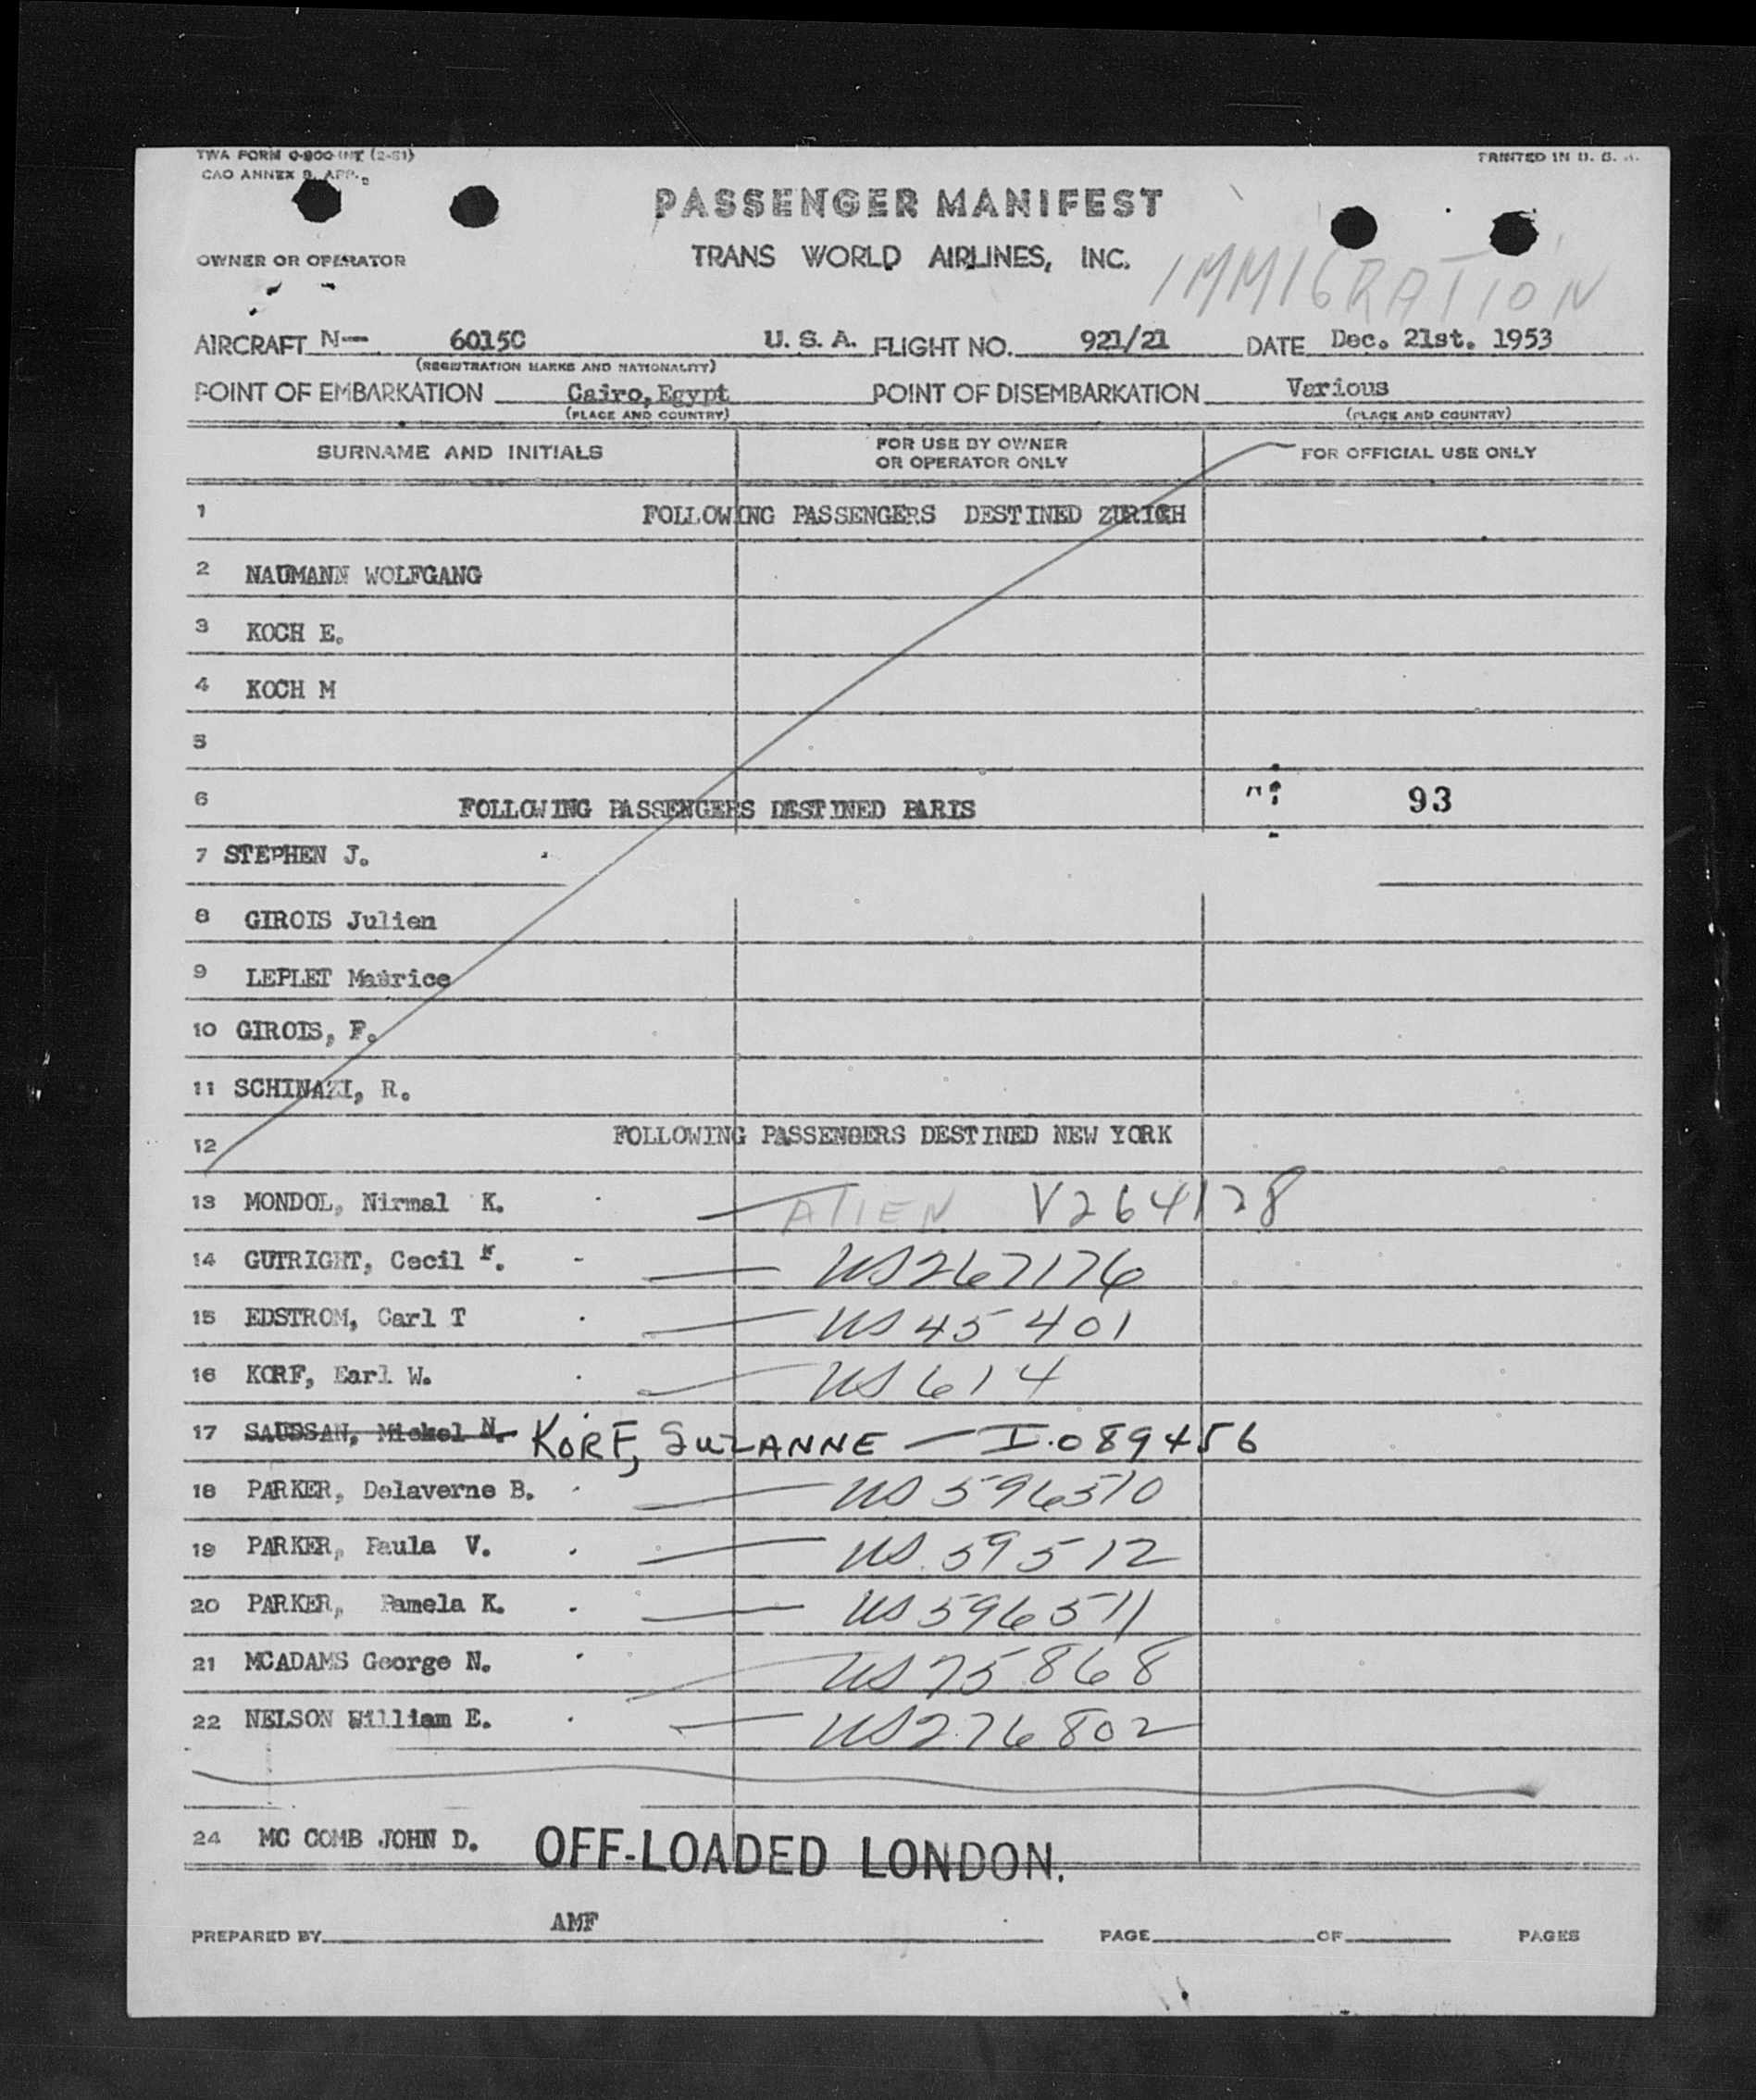 TWA FORM O-900-INT (2-51)
PRINTED IN U. S. A.
CAO ANNEX 9, APP.
PASSENGER MANIFEST
OWNER OR OPERATOR
TRANS WORLD AIRLINES, INC.
IMMIGRATION
AIRCRAFT N— 6015C U. S. A. FLIGHT NO. 921/21 DATE Dec. 21st. 1953
(REGISTRATION MARKS AND NATIONALITY)
POINT OF EMBARKATION Cairo, Egypt POINT OF DISEMBARKATION Various
(PLACE AND COUNTRY) (PLACE AND COUNTRY)
SURNAME AND INITIALS FOR USE BY OWNER OR OPERATOR ONLY FOR OFFICIAL USE ONLY
1 FOLLOWING PASSENGERS DESTINED ZURICH
2 NAUMANN WOLFGANG
3 KOCH E.
4 KOCH M
5
6 FOLLOWING PASSENGERS DESTINED PARIS 93
7 STEPHEN J.
8 GIROIS Julien
9 LEPLET Maurice
10 GIROIS, F.
11 SCHINAZI, R.
12 FOLLOWING PASSENGERS DESTINED NEW YORK
13 MONDOL, Nirmal K. — ALIEN V264128
14 GUTRIGHT, Cecil F. - — US267176
15 EDSTROM, Carl T — US45401
16 KORF, Earl W. — US614
17 SAUSSAN, Mickel N. KORF, SUZANNE — I.089456
18 PARKER, Delaverne B. — US596510
19 PARKER, Paula V. — US.59512
20 PARKER, Pamela K. — US596511
21 MCADAMS George N. — US75868
22 NELSON William E. — US276802
24 MC COMB JOHN D. OFF-LOADED LONDON.
PREPARED BY AMF PAGE OF PAGES